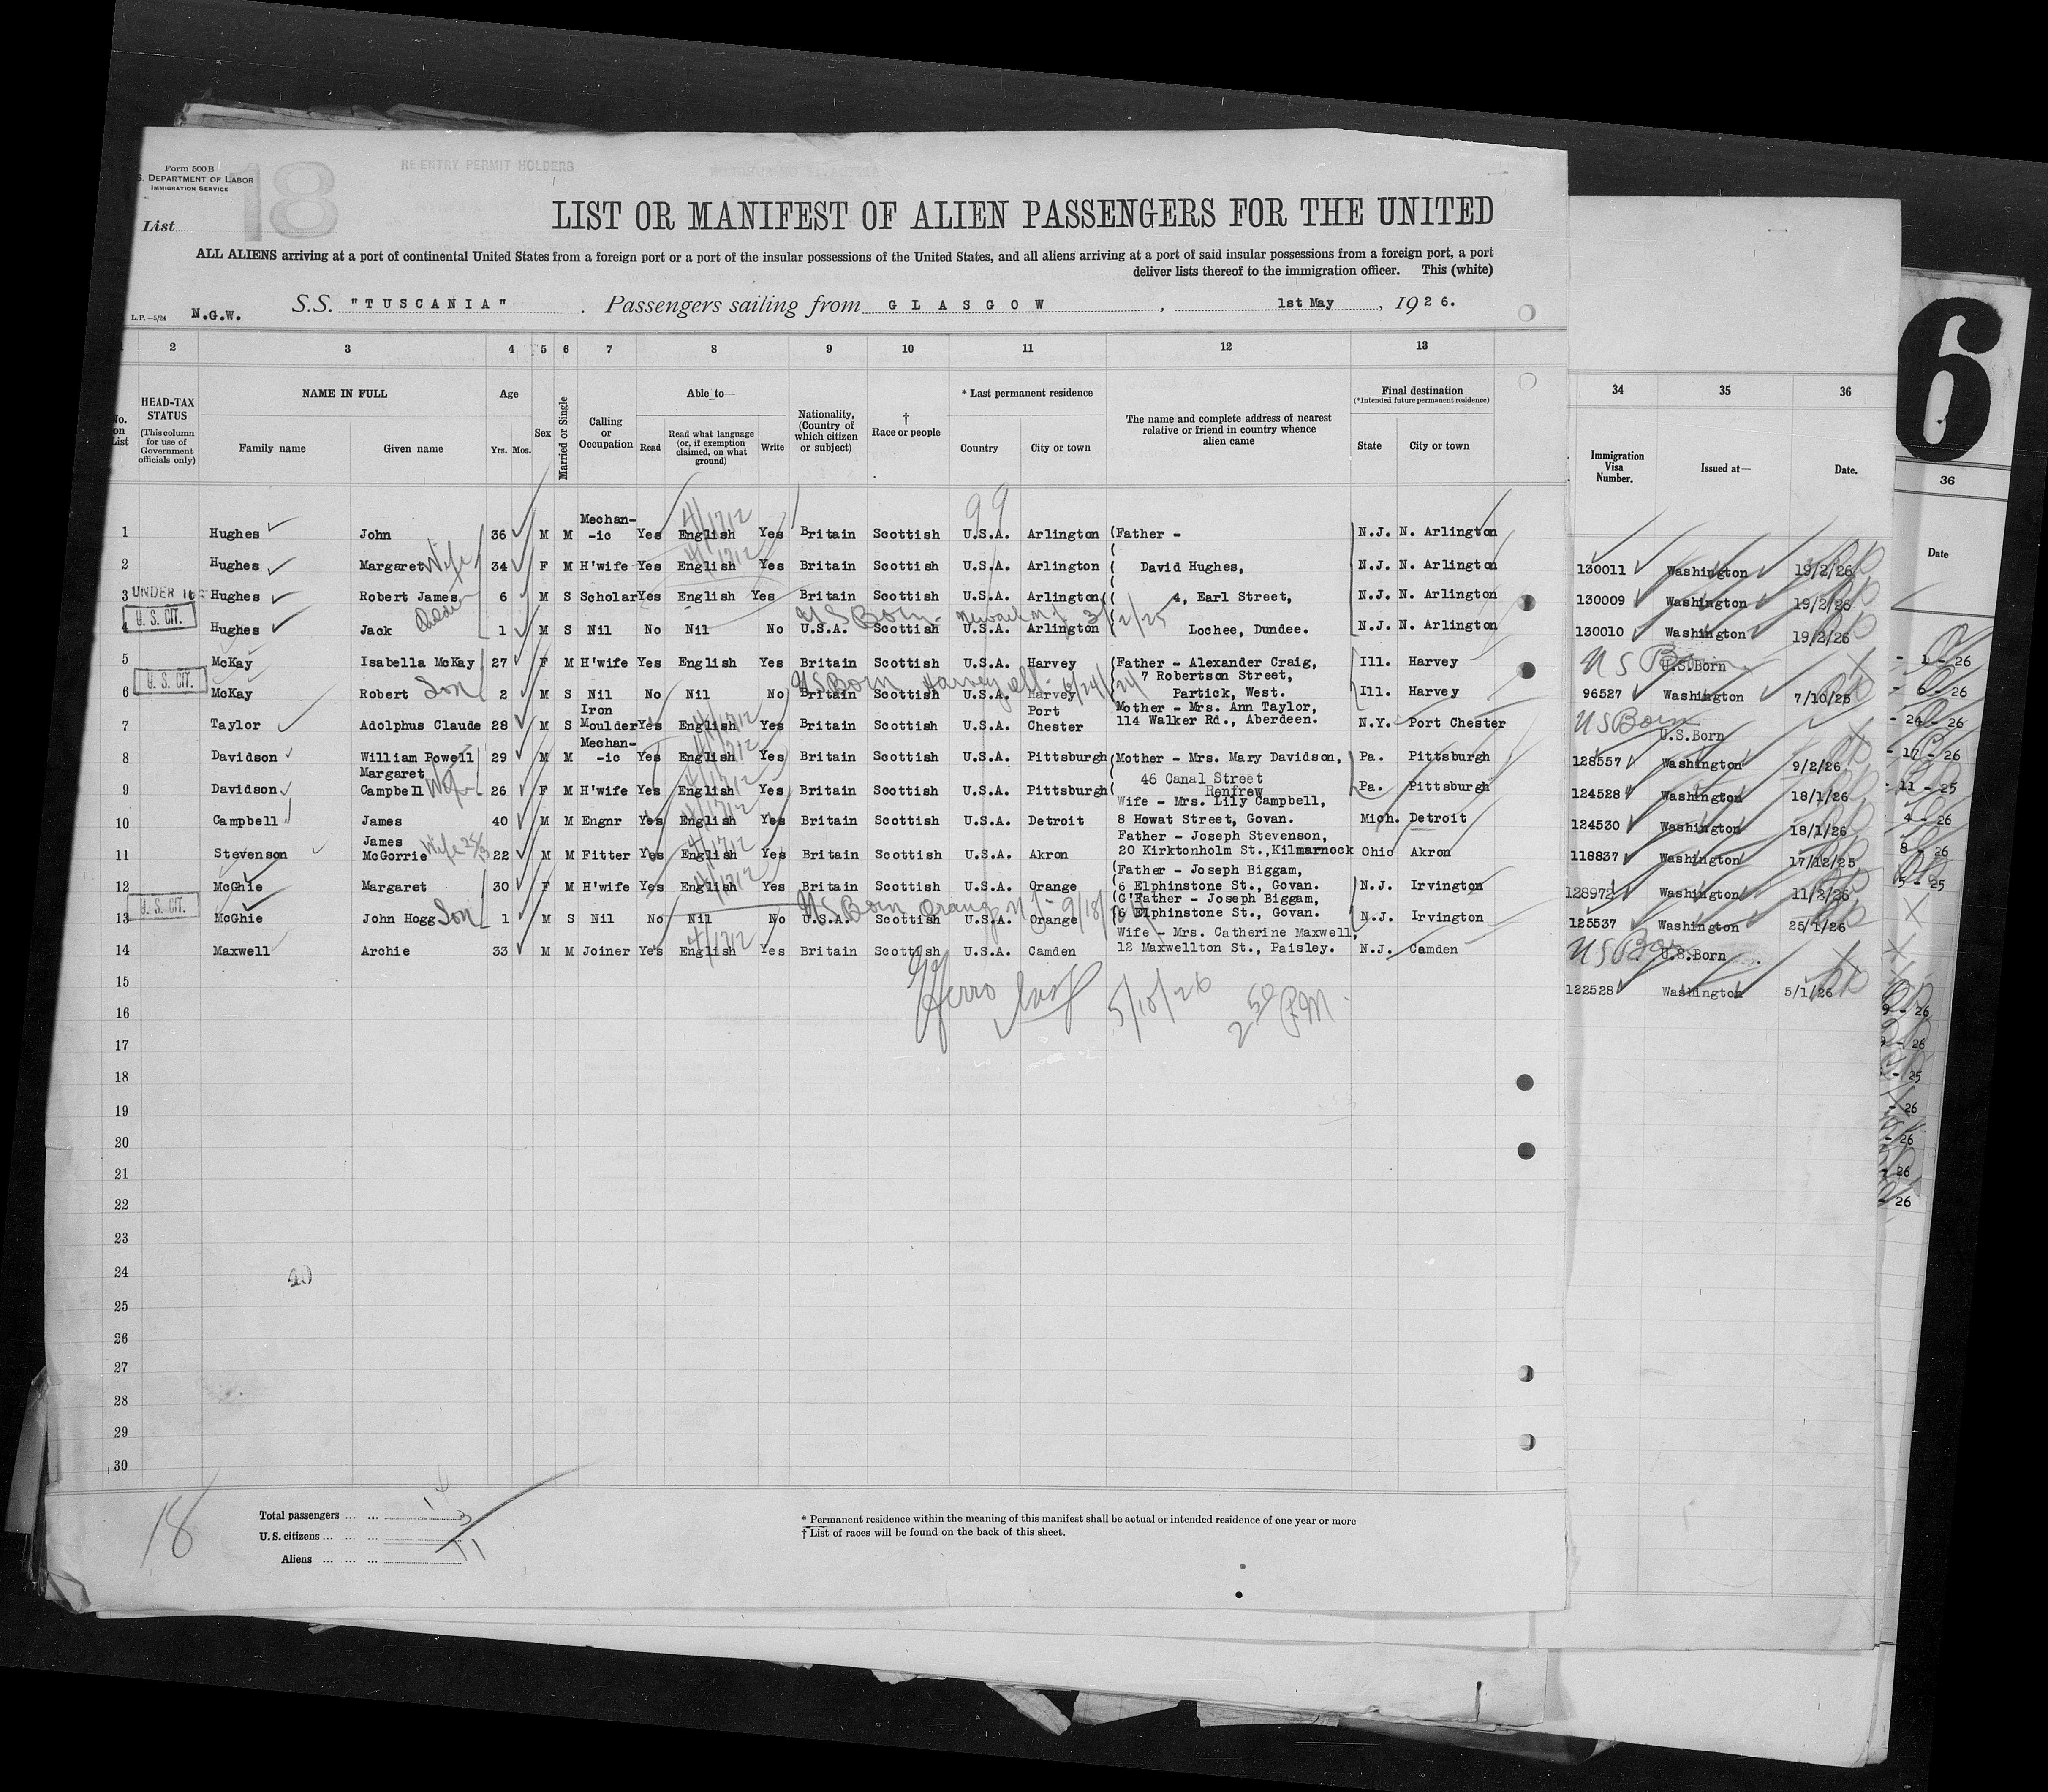 Form 500B
S. DEPARTMENT OF LABOR
IMMIGRATION SERVICE
18
RE-ENTRY PERMIT HOLDERS
List
LIST OR MANIFEST OF ALIEN PASSENGERS FOR THE UNITED
ALL ALIENS arriving at a port of continental United States from a foreign port or a port of the insular possessions of the United States, and all aliens arriving at a port of said insular possessions from a foreign port, a port
deliver lists thereof to the immigration officer. This (white)
L. P.—5/24 N.G.W. S.S. "TUSCANIA" . Passengers sailing from GLASGOW , 1st May , 1926.
6
2 3 4 5 6 7 8 9 10 11 12 13
34 35 36
36
No. on List
HEAD-TAX STATUS (This column for use of Government officials only)
NAME IN FULL Family name Given name
Age Yrs. Mos.
Sex
Married or Single
Calling or Occupation
Able to— Read Read what language (or, if exemption claimed, on what ground) Write
Nationality, (Country of which citizen or subject)
† Race or people
* Last permanent residence Country City or town
The name and complete address of nearest relative or friend in country whence alien came
Final destination (*Intended future permanent residence) State City or town
Immigration Visa Number. Issued at— Date.
Date
99
1 Hughes John 36 M M Mechan-ic Yes English 4/1712 Yes Britain Scottish U.S.A. Arlington (Father - N.J. N. Arlington
2 Hughes Margaret Wife 34 F M H'wife Yes English 4/1712 Yes Britain Scottish U.S.A. Arlington ( David Hughes, N.J. N. Arlington
UNDER 16
3 Hughes Robert James 6 M S Scholar Yes English Yes Britain Scottish U.S.A. Arlington ( 4, Earl Street, N.J. N. Arlington
U. S. CIT.
US Born Newark N.J. 3/2/25
4 Hughes Jack 1 M S Nil No Nil No U.S.A. Scottish U.S.A. Arlington ( Lochee, Dundee. N.J. N. Arlington
5 McKay Isabella McKay 27 F M H'wife Yes English Yes Britain Scottish U.S.A. Harvey (Father - Alexander Craig, Ill. Harvey
7 Robertson Street,
U. S. CIT.
US Born Harvey Ill. 6/24/24
6 McKay Robert Son 2 M S Nil No Nil No Britain Scottish U.S.A. Harvey Partick, West. Ill. Harvey
7 Taylor Adolphus Claude 28 M S Iron Moulder Yes English 4/1712 Yes Britain Scottish U.S.A. Port Chester Mother - Mrs. Ann Taylor, 114 Walker Rd., Aberdeen. N.Y. Port Chester
8 Davidson William Powell 29 M M Mechan-ic Yes English 4/1712 Yes Britain Scottish U.S.A. Pittsburgh (Mother - Mrs. Mary Davidson, Pa. Pittsburgh
9 Davidson Margaret Campbell Wife 26 F M H'wife Yes English 4/1712 Yes Britain Scottish U.S.A. Pittsburgh ( 46 Canal Street Renfrew Pa. Pittsburgh
10 Campbell James 40 M M Engnr Yes English 4/1712 Yes Britain Scottish U.S.A. Detroit Wife - Mrs. Lily Campbell, 8 Howat Street, Govan. Mich. Detroit
11 Stevenson James McGorrie 22 M M Fitter Yes English 4/1712 Yes Britain Scottish U.S.A. Akron Father - Joseph Stevenson, 20 Kirktonholm St.,Kilmarnock Ohio Akron
12 McGhie Margaret 30 F M H'wife Yes English 4/1712 Yes Britain Scottish U.S.A. Orange (Father - Joseph Biggam, (6 Elphinstone St., Govan. N.J. Irvington
U. S. CIT.
US Born Orange N.J.
13 McGhie John Hogg Son 1 M S Nil No Nil No U.S.A. Scottish U.S.A. Orange (G'Father - Joseph Biggam, (6 Elphinstone St., Govan. N.J. Irvington
14 Maxwell Archie 33 M M Joiner Yes English 4/1712 Yes Britain Scottish U.S.A. Camden Wife - Mrs. Catherine Maxwell, 12 Maxwellton St., Paisley. N.J. Camden
15
5/10/26 2 50 P.M.
16
17
18
19
20
21
22
23
24
40
25
26
27
28
29
30
130011 Washington 19/2/26
130009 Washington 19/2/26
130010 Washington 19/2/26
US Born U.S.Born
96527 Washington 7/10/25
US Born U.S.Born
128557 Washington 9/2/26
124528 Washington 18/1/26
124530 Washington 18/1/26
118837 Washington 17/12/25
128972 Washington 11/2/26
125537 Washington 25/1/26
US Born U.S.Born
122528 Washington 5/1/26
- 1 - 26
- 6 - 26
- 24 - 26
- 17 - 26
- 11 - 25
4 - 26
8 - 26
5 - 25
9 - 26
9 - 26
- 25
- 26
- 26
- 26
- 26
18
Total passengers ... ... 14
U. S. citizens ... ... 3
Aliens ... ... ... 11
* Permanent residence within the meaning of this manifest shall be actual or intended residence of one year or more
† List of races will be found on the back of this sheet.